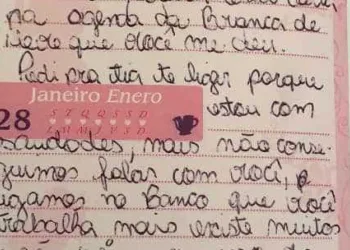 na agenda da Branca de
Neve que você me deu.
Pedi pra tia te ligar porque
Janeiro Enero
estou com
28
S T Q Q S S D
L M M J V S D
saudades, mais não conse-
guimos falar com você, e
ligamos no Banco que você
trabalha mais existe muitos